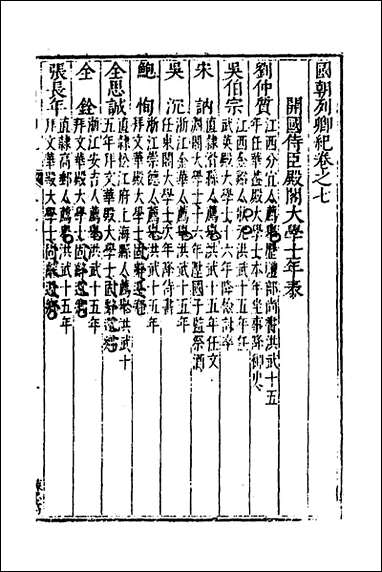 國朝列卿紀卷之七
開國侍臣殿閣大學士年表
劉仲質
江西分宜人薦舉歷禮部尚書洪武十五
年任華蓋殿大學士本年坐事降御史
吳伯宗
江西金谿人狀元洪武十五年任
武英殿大學士十六年降檢討卒
宋訥
直隸滑縣人薦舉洪武十五年任文
淵閣大學士十六年陞國子監祭酒
吳沉
浙江金華人薦舉洪武十五年
任東閣大學士次年降侍書
鮑恂
浙江崇德人薦舉洪武十五年
拜文華殿大學士固辭還鄉
全思誠
直隸松江府上海縣人薦舉洪武十
五年拜文華殿大學士固辭還鄉
全銓
浙江安吉人薦舉洪武十五年
拜文華殿大學士固辭還鄉
張長年
直隸高郵人薦舉洪武十五年
拜文華殿大學士固辭還鄉